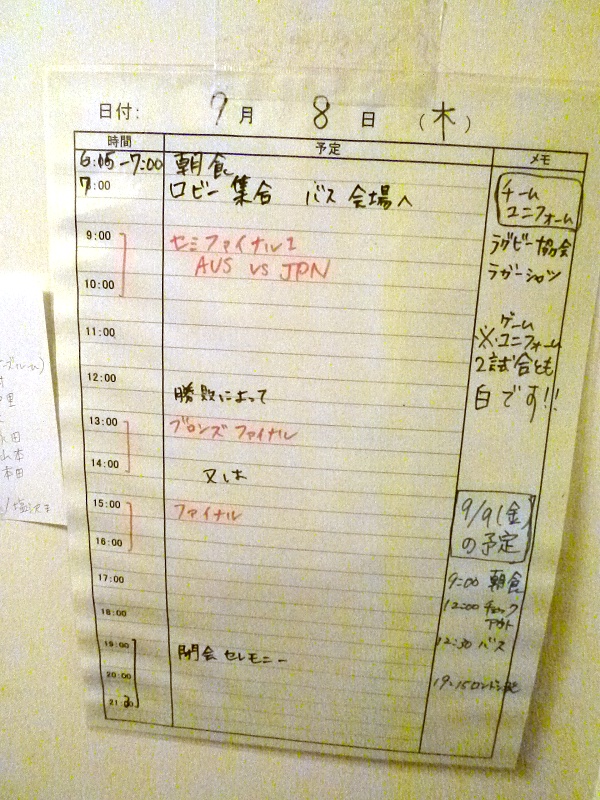 日付: 9月 8日 (木)
時間 予定 メモ
6:05-7:00 朝食
7:00 ロビー 集合 バス 会場へ
チーム
ユニフォーム
9:00 セミファイナル1
ラグビー協会
AUS vs JPN
ラガーシャツ
10:00
11:00
ゲーム
※ユニフォーム
2試合とも
白です!!
12:00
勝敗によって
13:00 ブロンズファイナル
14:00 又は
15:00 ファイナル
16:00
9/9(金)
の予定
17:00
9:00 朝食
18:00
12:00 チェック
アウト
19:00 閉会セレモニー
12:30 バス
20:00
19:15ロンドン発
21:30
田
山本
本田